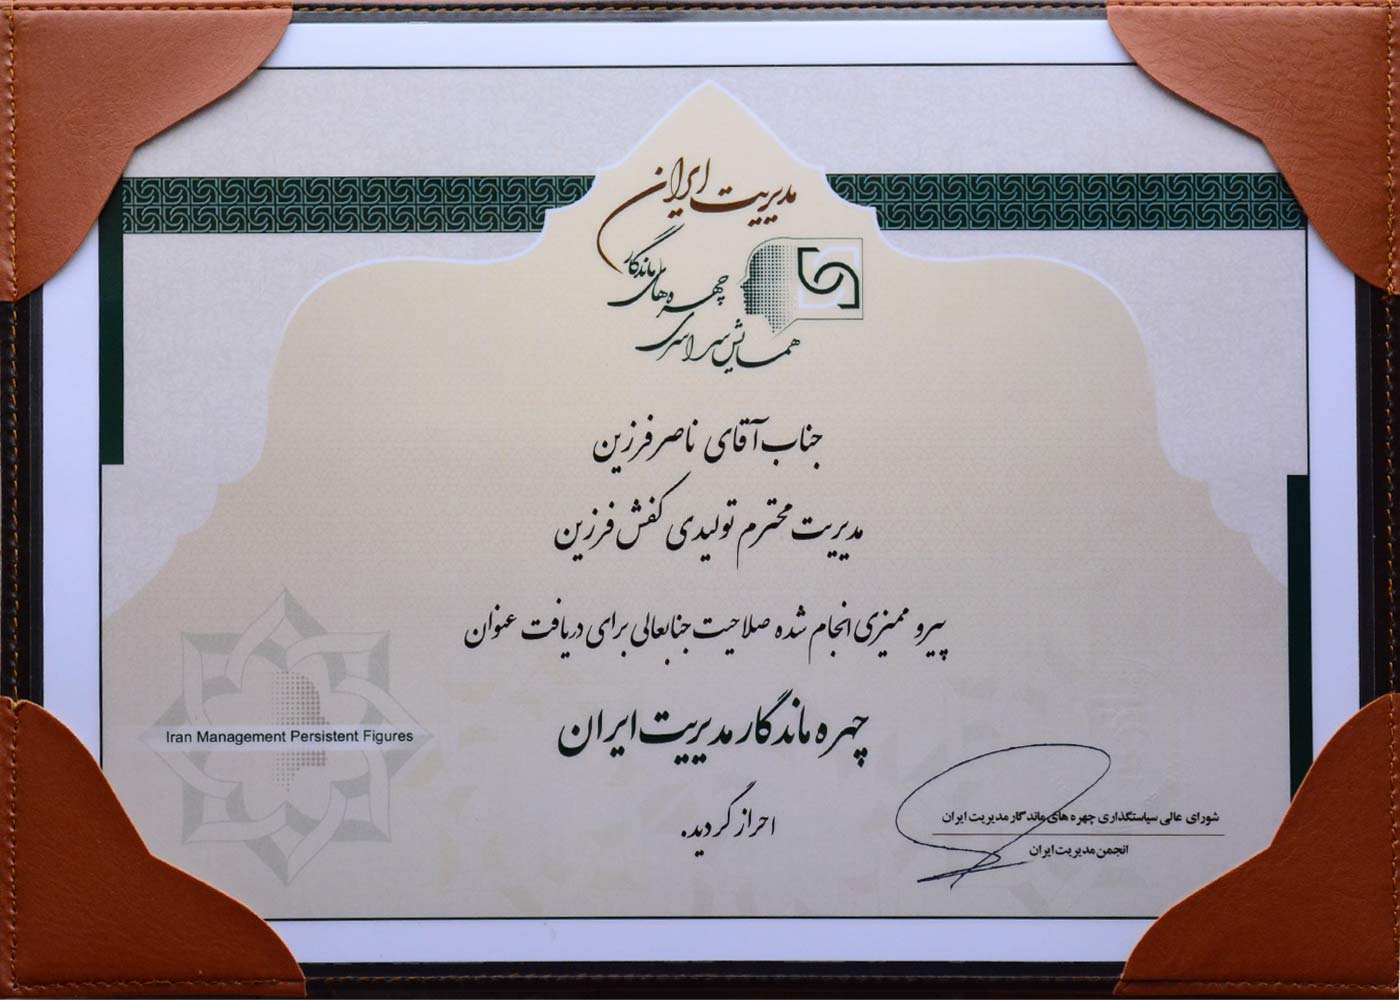 مدیریت ایران
چهره‌های ماندگار
همایش سراسری
جناب آقای ناصر فرزین
مدیریت محترم تولیدی کفش فرزین
پیرو ممیزی انجام شده صلاحیت جنابعالی برای دریافت عنوان
چهره ماندگار مدیریت ایران
احراز گردید.
Iran Management Persistent Figures
شورای عالی سیاستگذاری چهره های ماندگار مدیریت ایران
انجمن مدیریت ایران